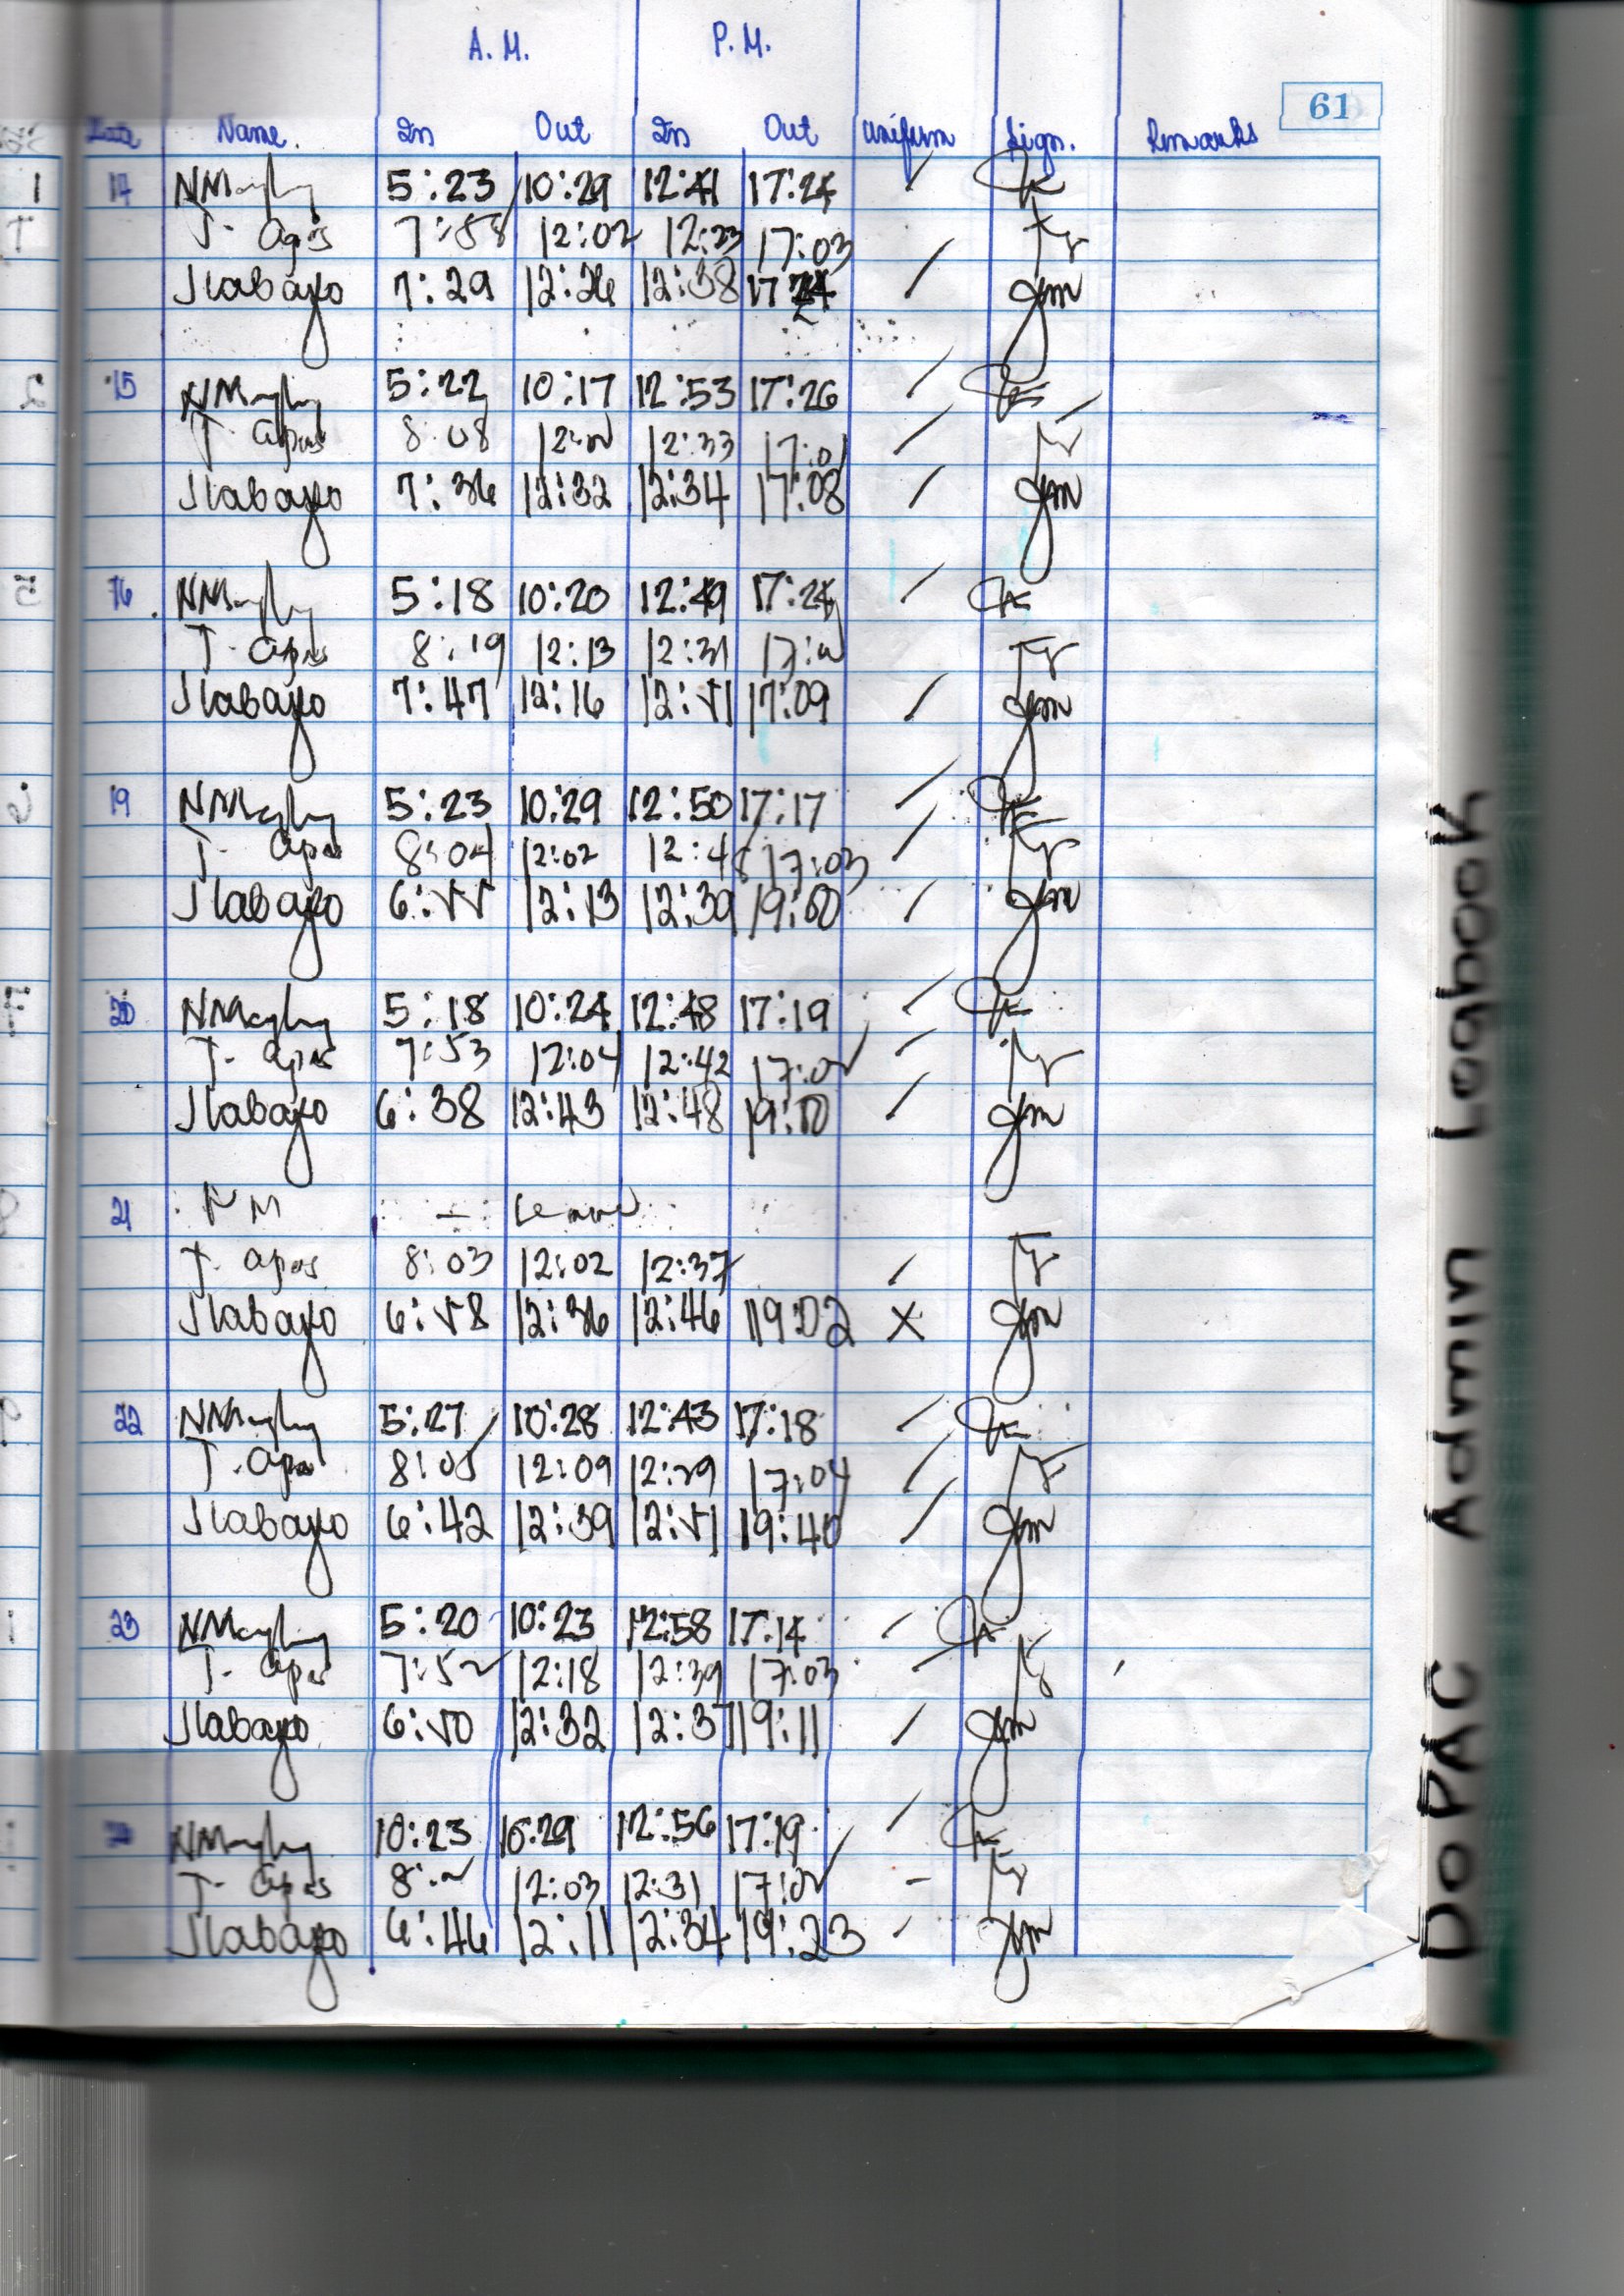 A.M. P.M.
61
Date Name. In Out In Out Uniform Sign. Remarks
14 5:23 10:29 12:41 17:24
T. Apas 7:58 12:02 12:23 17:03
Jlabayo 7:29 12:26 12:38 17
15 5:22 10:17 12:53 17:26
T. Apas 8:08 12:33 17:01
Jlabayo 7:36 12:32 12:34 17:08
16 5:18 10:20 12:49 17:24
T. Apas 8:19 12:13 12:31
Jlabayo 7:47 12:16 12:51 17:09
19 5:23 10:29 12:50 17:17
T. Apas 8:04 12:02 12:48 17:03
Jlabayo 6:55 12:13 12:39 19:00
20 5:18 10:24 12:48 17:19
T. Apas 7:53 12:04 12:42 17:02
Jlabayo 6:38 12:43 12:48 19:10
21 NM — Leave
T. Apas 8:03 12:02 12:37
Jlabayo 6:58 12:36 12:46 19:02 X
22 5:27 10:28 12:43 17:18
T. Apas 8:05 12:09 12:29 17:04
Jlabayo 6:42 12:39 12:51 19:40
23 5:20 10:23 12:58 17:14
T. Apas 7:52 12:18 12:39 17:03
Jlabayo 6:50 12:32 12:37 19:11
10:23 10:29 12:56 17:19
T. Apas 12:03 12:31 17:02
Jlabayo 6:46 12:11 12:34 19:23
DoPAC Admin Logbook